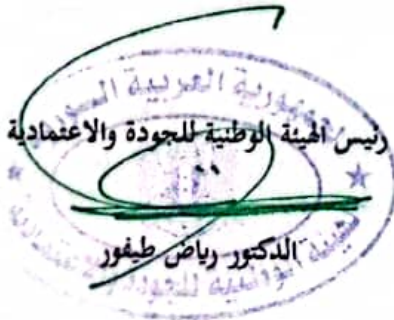 الجمهورية العربية السورية
رئيس الهيئة الوطنية للجودة والاعتمادية
الدكتور رياض طيفور
الهيئة الوطنية للجودة والاعتمادية